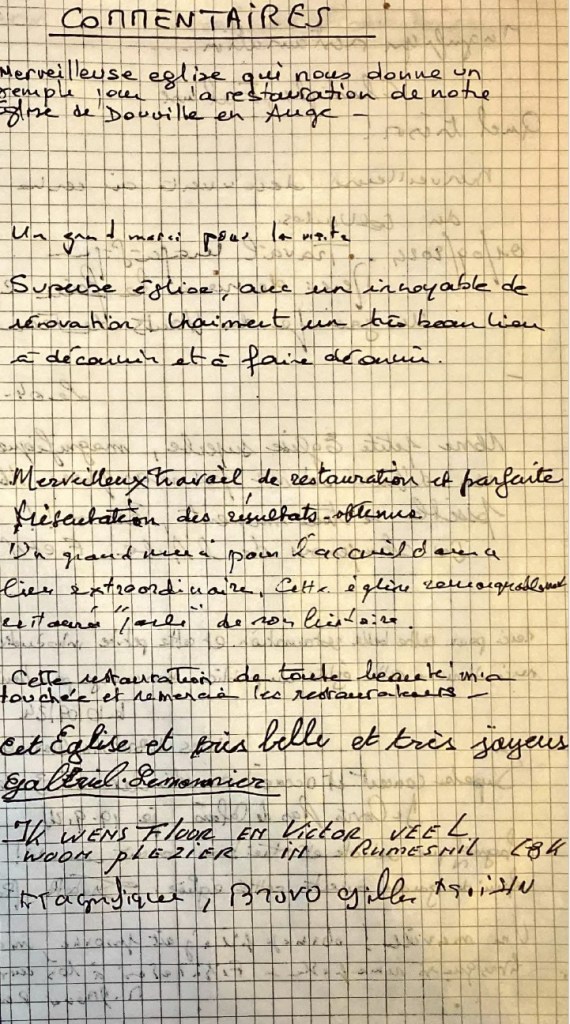 COMMENTAIRES
Merveilleuse eglise qui nous donne un
exemple pour la restauration de notre
Eglise de Douville en Auge –
Un grand merci pour la visite
Superbe église, avec un incroyable de
rénovation Vraiment un très beau lieu
à découvrir et à faire découvrir.
Merveilleux travail de restauration et parfaite
Présentation des résultats obtenus
Un grand merci pour l'accueil dans
lieu extraordinaire. Cette église remarquablement
restaurée "parle" de son histoire.
Cette restauration de toute beauté m'a
touchée et remercie les restaurateurs –
Cet Eglise et très belle et très joyeus
Gabriel Lemonnier
IK WENS FLOOR EN Victor VEEL
WOON PLEZIER IN RUMESNIL
Magnifique, Bravo Gilles